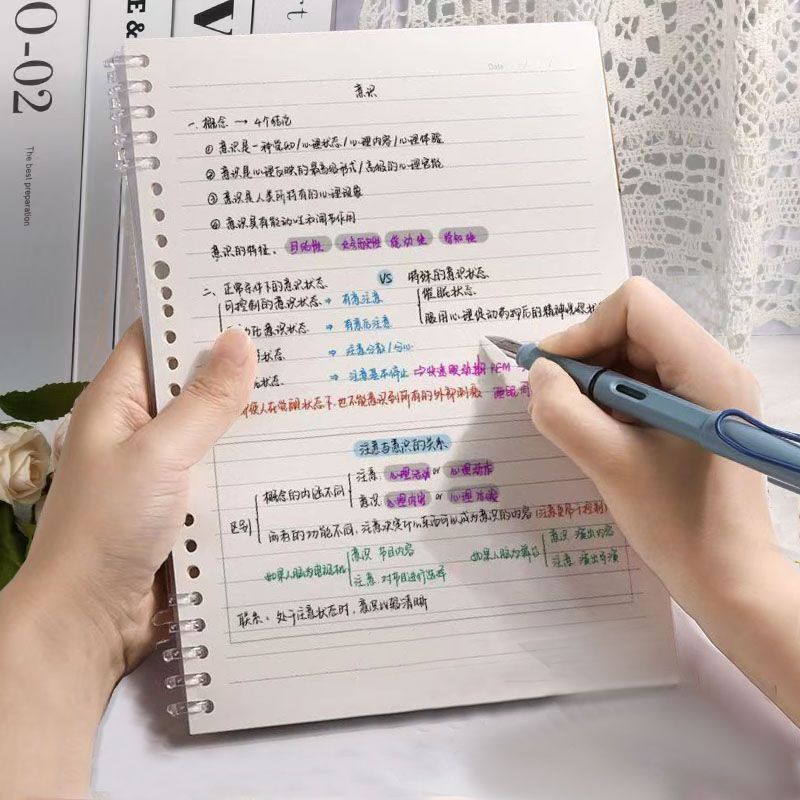 0-02
The best preparation
E &
V
Date
意识
一、概念 → 4个结论
① 意识是一种觉知/心理状态/心理内容/心理体验
② 意识是心理反映的最高级形式/高级的心理官能
③ 意识是人类所特有的心理现象
④ 意识具有能动性和调节作用
意识的特征。 自觉性 能动性
二、正常条件下的意识状态 VS 特殊的意识状态
可控制的意识状态 ⇒ 有意注意 催眠状态
意识状态 ⇒ 有意后注意 服用心理促动药物后的精神恍惚状
状态 ⇒ 注意分散/分心
状态 ⇒ 注意基本停止 快速眼动期 REM
使人在觉醒状态下,也不能意识到所有的外部刺激
注意与意识的关系
区别
概念的内涵不同 注意:心理活动 or 心理动作
意识 心理内容 or 心理体验
两者的功能不同,注意决定什么东西可以成为意识的内容
如果人脑为电视机 意识 节目内容 如果人脑为舞台 意识 演出内容
注意:对节目进行选择 注意 演出导演
联系:处于注意状态时,意识比较清晰